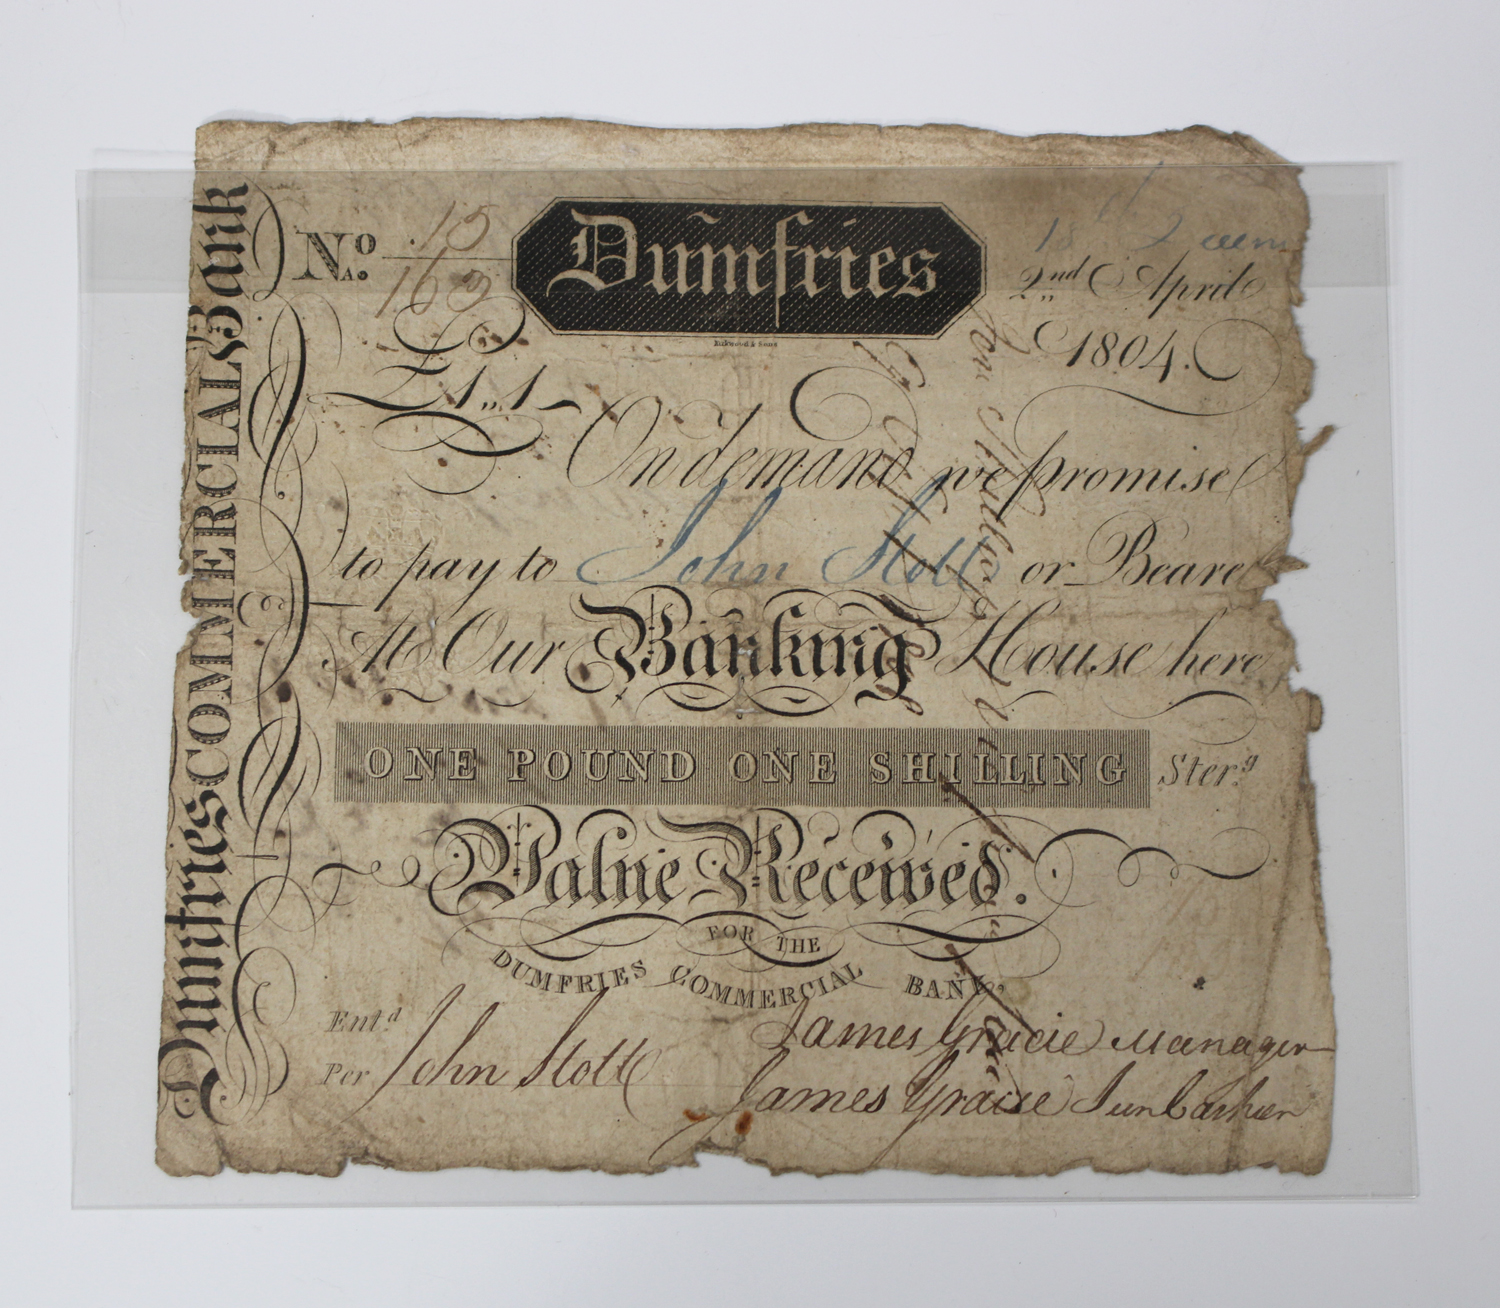 Dumfries COMMERCIAL Bank
No. 15
Dumfries
2nd April
163
1804.
Kirkwood & Sons
£1,,1
On demand we promise
to pay to John Stott or Bearer
At Our Banking House here
ONE POUND ONE SHILLING Sterg.
Value Received.
FOR THE
DUMFRIES COMMERCIAL BANK.
Entd
James Gracie Manager
Per John Stott
James Gracie Junr Cashier